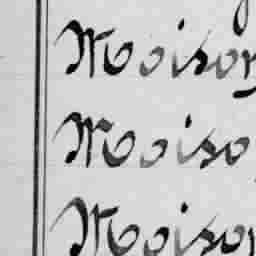 Moison
Moiso
Moison